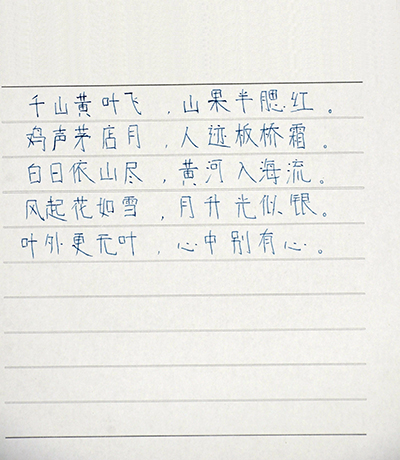 千山黄叶飞，山果半腮红。
鸡声茅店月，人迹板桥霜。
白日依山尽，黄河入海流。
风起花如雪，月升光似银。
叶外更无叶，心中别有心。